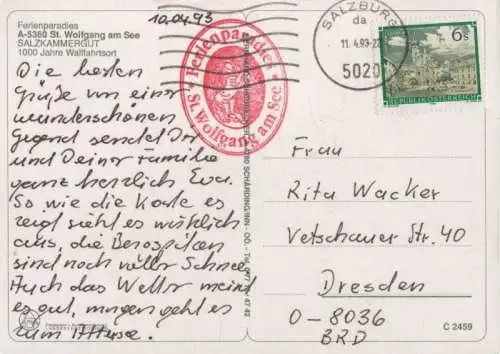 Ferienparadies
A-5360 St. Wolfgang am See
SALZKAMMERGUT
1000 Jahre Wallfahrtsort
10.04.93
Die besten
Grüße von einer
wunderschönen
Gegend sendet Dir
und Deiner Familie
ganz herzlich Eva.
So wie die Karte es
zeigt sieht es wirklich
aus, die Bergspitzen
sind noch voller Schnee.
Auch das Wetter meint
es gut, morgen geht es
zum Attersee.
Ferienparadies
St. Wolfgang am See
SALZBURG
da
11. 4.93-2
5020
6s
REPUBLIK ÖSTERREICH
Frau
Rita Wacker
Vetschauer Str. 40
Dresden
O-8036
BRD
C 2459
SCHÄRDING/INN - OÖ. - Tel.